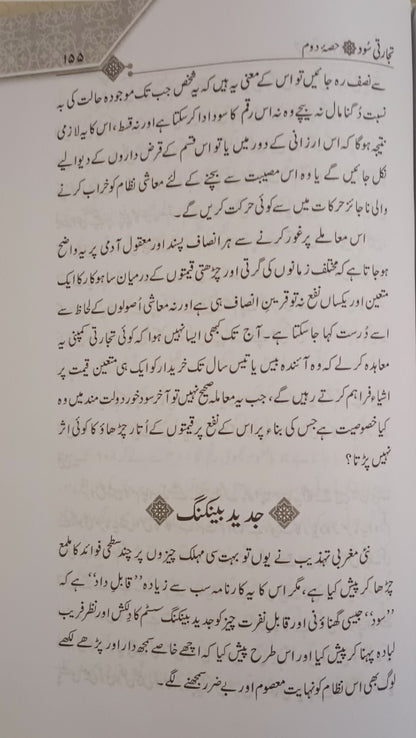 تجارتی سُود حصۂ دوم
۱۵۵
سے نصف رہ جائیں تو اس کے معنی یہ ہیں کہ یہ شخص جب تک موجودہ حالت کی بہ
نسبت دُگنا مال نہ بیچے وہ نہ اس رقم کا سود ادا کر سکتا ہے اور نہ قسط، اس کا یہ لازمی
نتیجہ ہوگا کہ اس ارزانی کے دور میں یا تو اس قسم کے قرض داروں کے دیوالیے
نکل جائیں گے یا وہ اس مصیبت سے بچنے کے لئے معاشی نظام کو خراب کرنے
والی ناجائز حرکات میں سے کوئی حرکت کریں گے۔
اس معاملے پر غور کرنے سے ہر انصاف پسند اور معقول آدمی پر یہ واضح
ہو جاتا ہے کہ مختلف زمانوں کی گرتی اور چڑھتی قیمتوں کے درمیان ساہوکار کا ایک
متعین اور یکساں نفع نہ تو قرینِ انصاف ہی ہے اور نہ معاشی اُصولوں کے لحاظ سے
اسے دُرست کہا جا سکتا ہے۔ آج تک کبھی ایسا نہیں ہوا کہ کوئی تجارتی کمپنی یہ
معاہدہ کر لے کہ وہ آئندہ بیس یا تیس سال تک خریدار کو ایک ہی متعین قیمت پر
اشیاء فراہم کرتے رہیں گے، جب یہ معاملہ صحیح نہیں تو آخر سود خور دولت مند میں وہ
کیا خصوصیت ہے جس کی بناء پر اس کے نفع پر قیمتوں کے اُتار چڑھاؤ کا کوئی اثر
نہیں پڑتا؟
جدید بینکنگ
نئی مغربی تہذیب نے یوں تو بہت سی مہلک چیزوں پر چند سطحی فوائد کا ملمع
چڑھا کر پیش کیا ہے، مگر اس کا یہ کارنامہ سب سے زیادہ ’’قابلِ داد‘‘ ہے کہ
’’سود‘‘ جیسی گھناؤنی اور قابلِ نفرت چیز کو جدید بینکنگ سسٹم کا دِلکش اور نظر فریب
لبادہ پہنا کر پیش کیا اور اس طرح پیش کیا کہ اچھے خاصے سمجھ دار اور پڑھے لکھے
لوگ بھی اس نظام کو نہایت معصوم اور بے ضرر سمجھنے لگے۔